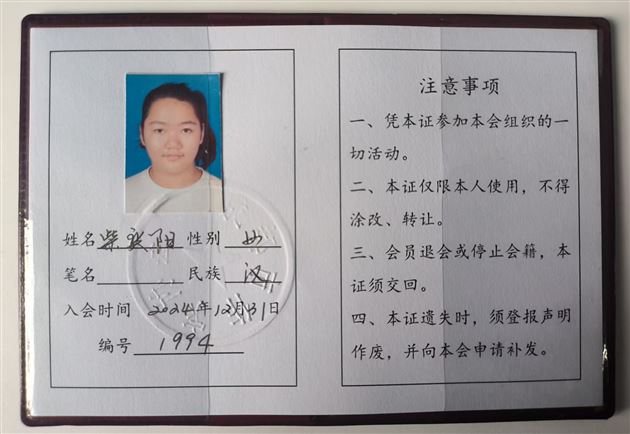 姓名 柴 阳 性别 女
笔名 民族 汉
入会时间 2024年12月31日
编号 1994
注意事项
一、凭本证参加本会组织的一
切活动。
二、本证仅限本人使用，不得
涂改、转让。
三、会员退会或停止会籍，本
证须交回。
四、本证遗失时，须登报声明
作废，并向本会申请补发。